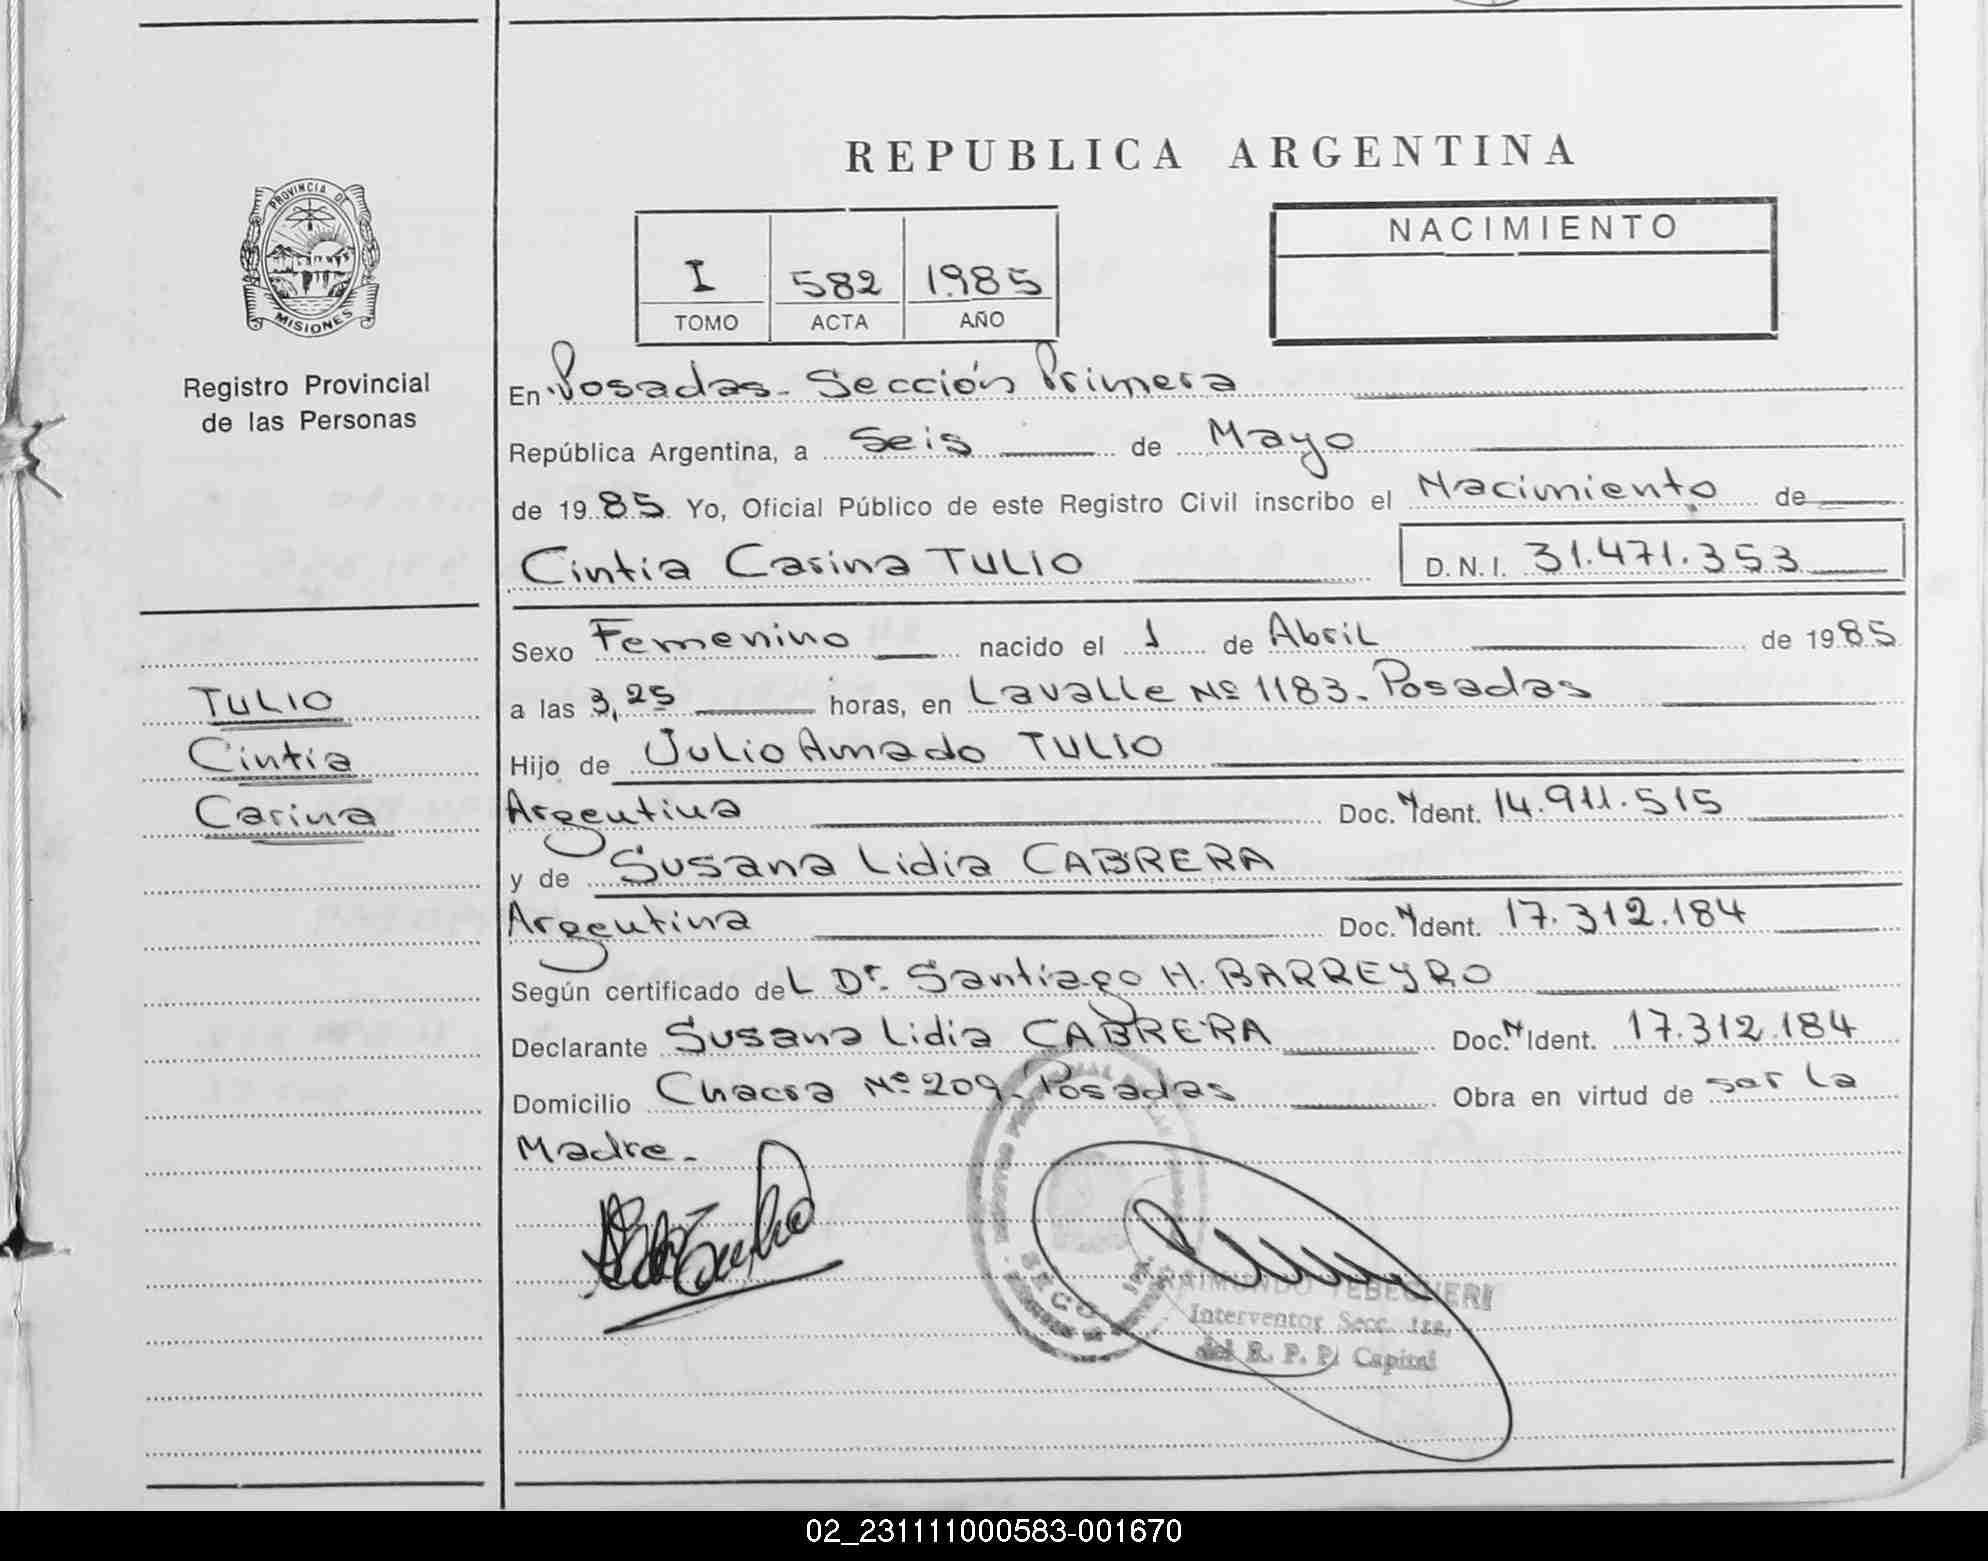 REPUBLICA ARGENTINA
PROVINCIA DE
MISIONES
Registro Provincial
de las Personas
I 582 1985
TOMO ACTA AÑO
NACIMIENTO
En Posadas - Sección Primera
República Argentina, a Seis de Mayo
de 1985 Yo, Oficial Público de este Registro Civil inscribo el Nacimiento de
Cintia Carina TULIO D.N.I. 31.471.353
Sexo Femenino nacido el 1 de Abril de 1985
a las 3,25 horas, en Lavalle Nº 1183. Posadas
Hijo de Julio Amado TULIO
Argentina Doc. Ident. 14.911.515
y de Susana Lidia CABRERA
Argentina Doc. Ident. 17.312.184
Según certificado deL Dr. Santiago H. BARREYRO
Declarante Susana Lidia CABRERA Doc. Ident. 17.312.184
Domicilio Chacra Nº 209. Posadas Obra en virtud de ser la
Madre.
TULIO
Cintia
Carina
SECC.
RAIMUNDO
Interventor Secc. 1ra.
del R. P. P. Capital
02_231111000583-001670